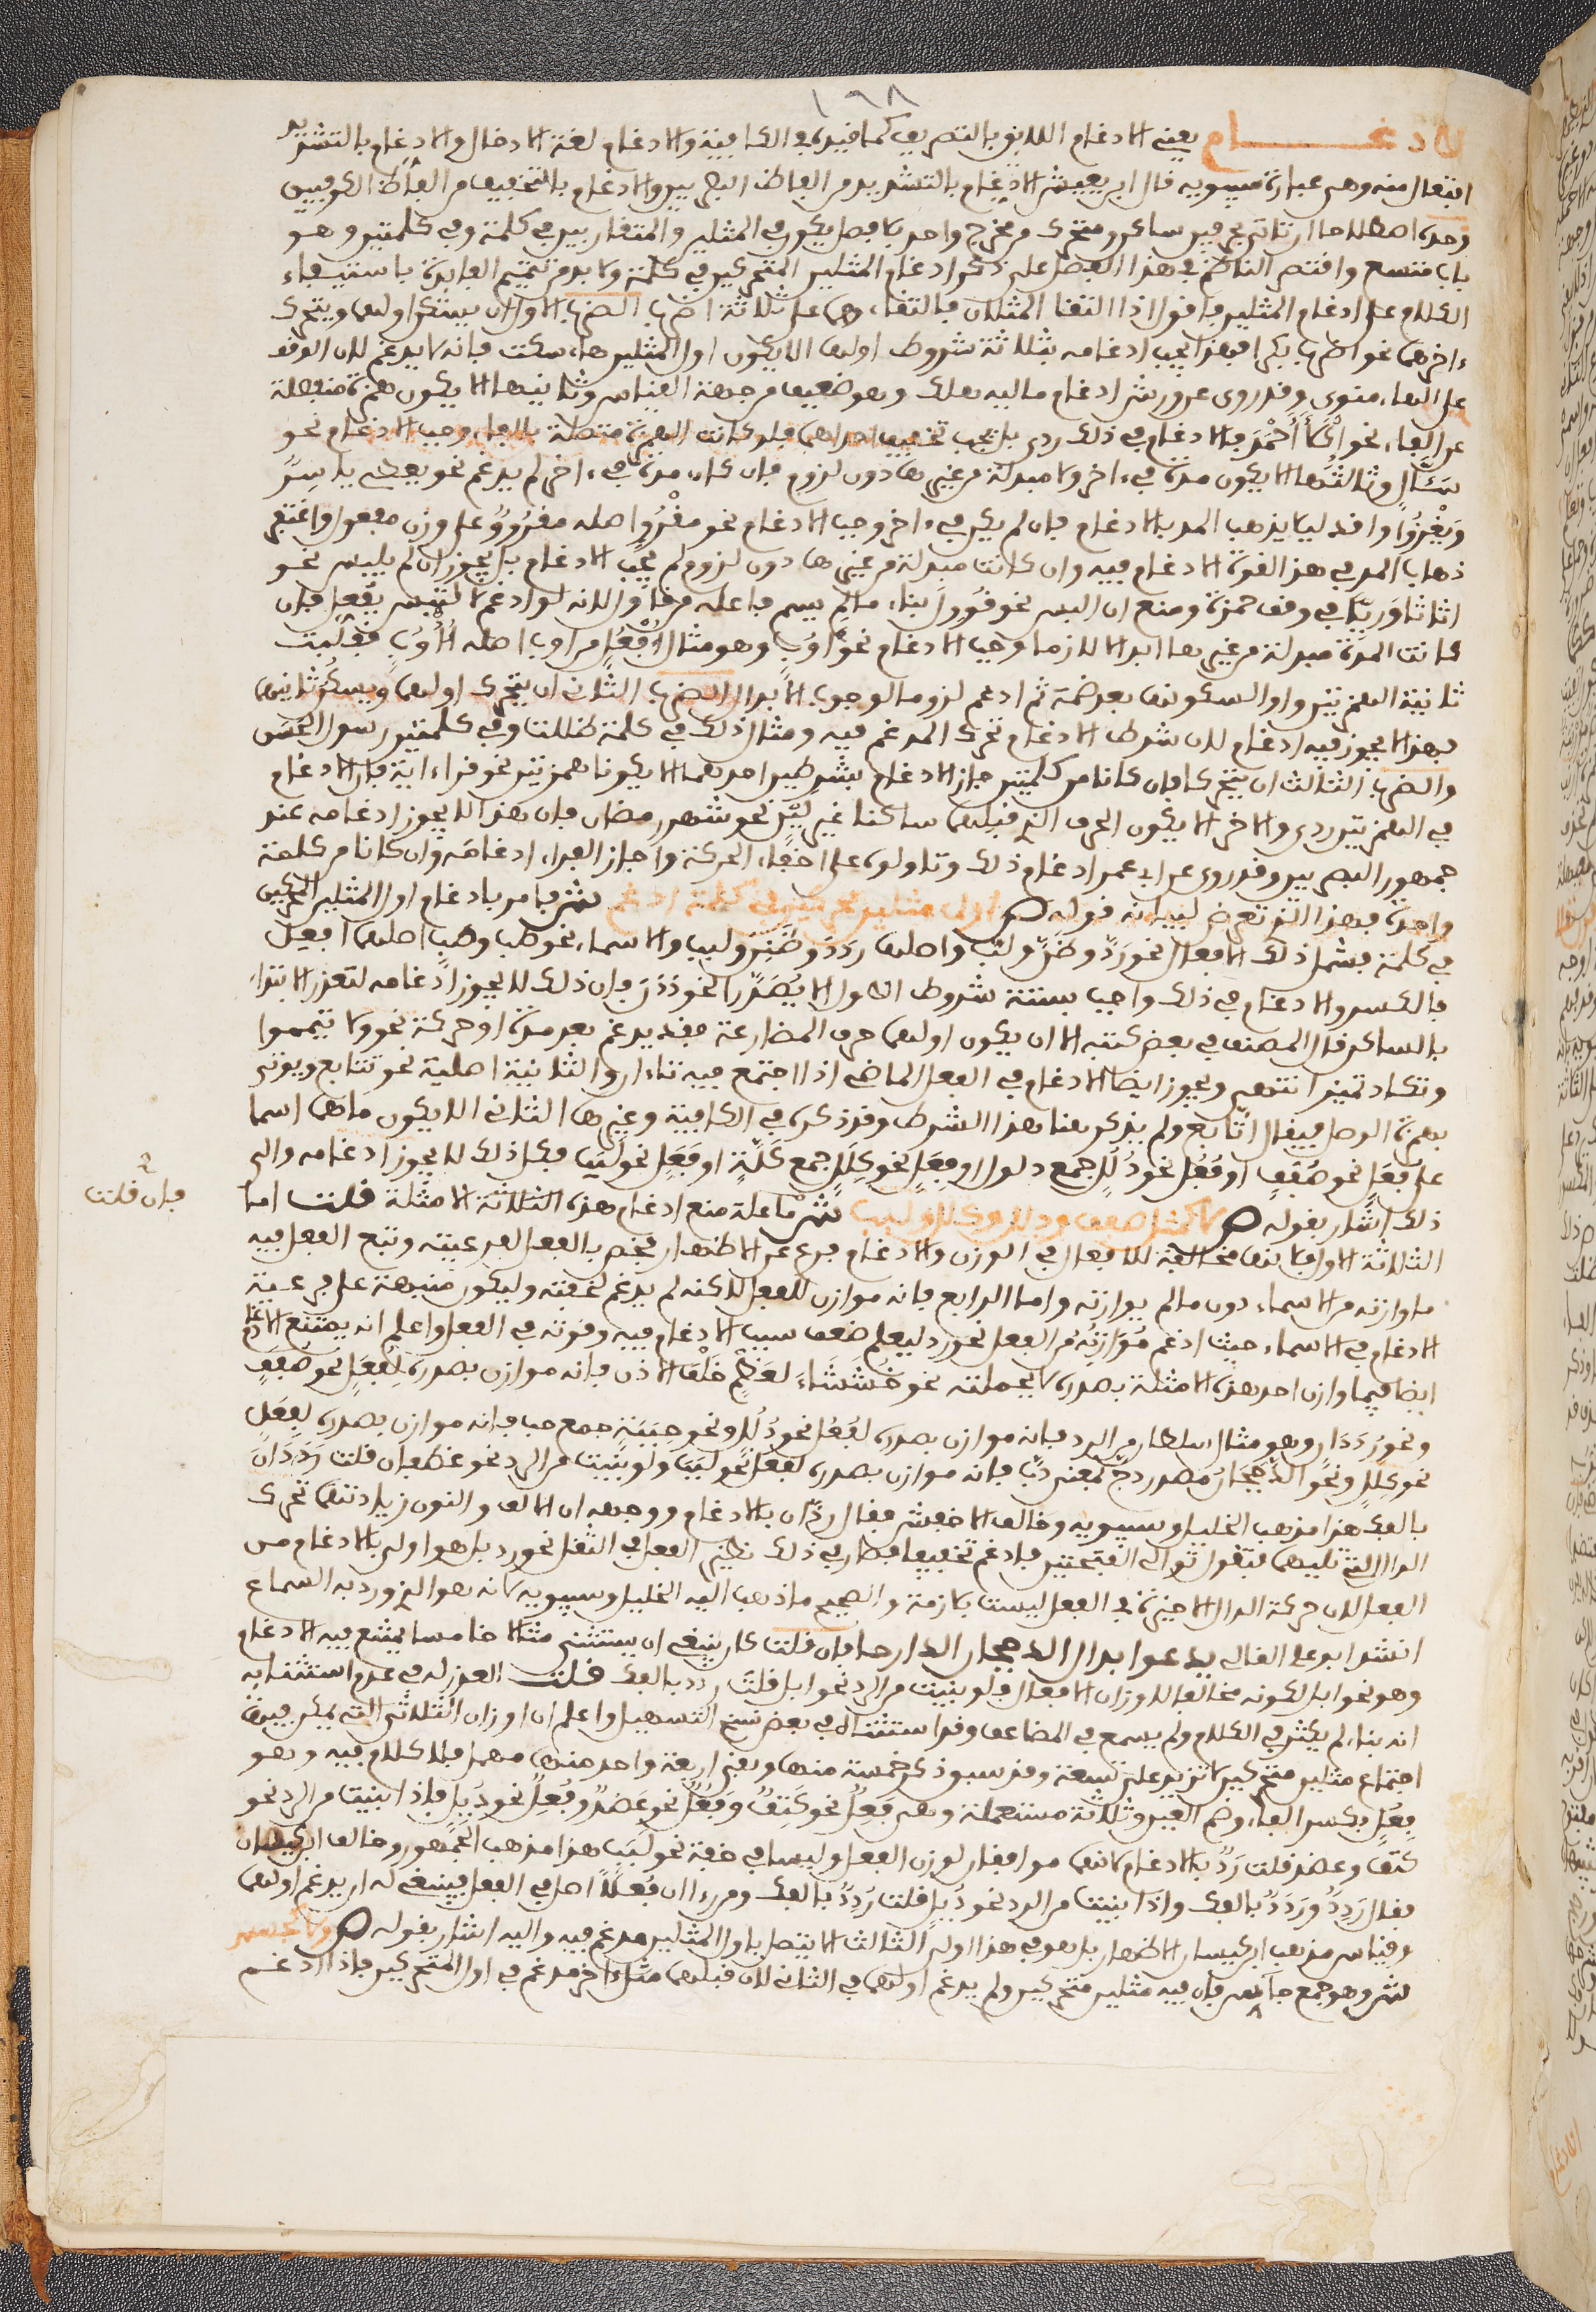 ١٦٨
الادغــــام يعني الادغام اللائق بالتصريف كما قيده في الكافية والادغام لغة الادخال والادغام بالتشديد
افتعال منه وهي عبارة سيبويه قال ابن يعيش الادغام بالتشديد من الفاظ البصريين والادغام بالتخفيف من الفاظ الكوفيين
وحده اصطلاحا ان تاتي بحرفين ساكن ومتحرك من مخرج واحد بلا فصل ويكون في المثلين والمتقاربين في كلمة وفي كلمتين وهو
باب متسع واقتصر الناظم في هذا الفصل على ذكر ادغام المثلين المتحركين في كلمة ولا بد من تتميم الفايدة باستيفاء
الكلام على ادغام المثلين فاقول اذا التقا المثلان فالتقاءهما على ثلاثة اضرب الضرب الاول ان يسكن اولهما ويتحرك
ءاخرهما نحو اضرب بكرا فهذا يجب ادغامه بثلاثة شروط اولها الا يكون اول المثلين هاء سكت فانه لا يدغم لان الوقف
على الهاء منوي وقد روي عن ورش ادغام ماليه هلك وهو ضعيف من جهة القياس وثانيها الا يكون همزة منفصلة
عن الفاء نحو اكلأ أحمد فالادغام في ذلك ردي بل يجب تخفيف احداهما فلو كانت الهمزة متصلة بالفاء وجب الادغام نحو
سَئَّال وثالثها الا يكون مدة في ءاخر ولا مبدلة من غيرها دون لزوم فان كان مدة في ءاخر لم يدغم نحو يعطي ياسر
ويغزوا وافد ليلا يذهب المد بالادغام فان لم يكن في ءاخر وجب الادغام نحو مغزو اصله مغزوو على وزن مفعول واغتفر
ذهاب المد في هذا لقوة الادغام فيه وان كانت مبدلة من غيرها دون لزوم لم يجب الادغام بل يجوز ان لم يلبس نحو
اثاثا وريّا في وقف حمزة ومنع ان البس نحو قُوول بناء ما لم يسم فاعله من قاول لانه لو ادغم لالتبس بفُعِّل فان
كانت المدة مبدلة من غيرها ابدالا لازما وجب الادغام نحو اوُب وهو مثال اُفعُل من اوب اصله اُاْوُب فقلبت
ثانية الهمزتين واوا لسكونها بعد ضمة ثم ادغم لزوما لوجوب الابدال الضرب الثاني ان يتحرك اولهما ويسكن ثانيهما
فهذا لا يجوز فيه ادغام لان شرط الادغام تحرك المدغم فيه ومثال ذلك في كلمة ظللت وفي كلمتين رسول الحسن
والضرب الثالث ان يتحركا فان كانا من كلمتين جاز الادغام بشرطين احدهما الا يكونا همزتين نحو قرأ ءاية فان الادغام
في الهمزتين ردي والاخر الا يكون الحرف الذي قبلهما ساكنا غير لين نحو شهر رمضان فان هذا لا يجوز ادغامه عند
جمهور البصريين وقد روي عن ابي عمر ادغام ذلك وتاولوه على اخفاء الحركة واجاز الفراء ادغامه وان كانا من كلمة
واحدة فهذا الذي تعرض لبيانه قوله ص اول مثلين محركين في كلمة ادغم ش فامر بادغام اول المثلين المحركين
في كلمة فشمل ذلك الافعال نحو ردَّ وظنَّ ولبَّ واصلها رَدَدَ وظَنَنَ ولَبُبَ والاسماء نحو طب وطب اصلهما فعل
بالكسر والادغام في ذلك واجب بستة شروط الاول الا يُصَدَّرا نحو دَدَن فان ذلك لا يجوز ادغامه لتعذر الابتداء
بالساكن قال المصنف في بعض كتبه الا ان يكون اولهما حرف المضارعة فقد يدغم بعد مدة او حركة نحو ولا تيمموا
وتكاد تميز انتهى ويجوز ايضا الادغام في الفعل الماضي اذا اجتمع فيه تاءان والثانية اصلية نحو تتابع ويوتى
بهمزة الوصل فيقال اتّابع ولم يذكر هنا هذا الشرط وقد ذكره في الكافية وغيرها الثاني الا يكون ما هما اسما
على فُعَل نحو صُفَف او فُعُل نحو ذُلُل جمع دلول او فِعَل نحو كِلَل جمع كلة او فَعَل نحو لَبَب فكل ذلك لا يجوز ادغامه والى
ذلك اشار بقوله ص لا كمثل صفف وذلل وكلل ولبب ش ما علة منع ادغام هذه الثلاثة الامثلة قلت اما
فان قلت
الثلاثة الاول فلانها مخالفة للافعال في الوزن والادغام فرع عن الاظهار فخص بالفعل لفرعيته وتبع الفعل فيه
ما وازنه من الاسماء دون ما لم يوازنه واما الرابع فانه موازن للفعل لكنه لم يدغم لخفته وليكون منبهة على فرعية
الادغام في الاسماء حيث ادغم مُوَازِنُه من الفعل نحو رد ليعلم ضعف سبب الادغام فيه وقوته في الفعل واعلم انه يمتنع الادغام
ايضا فيما وازن احد هذه الامثلة بصدره لا بجملته نحو خُشَشَاءَ لعظم خلف الاذن فانه موازن بصدره لفُعَل نحو صُفَف
ونحو رُدَدَار وهو مثال سلطان من الرد فانه موازن بصدره لفُعُل نحو ذُلُل ونحو حِبَبَة جمع حب فانه موازن بصدره لفِعَل
نحو كِلَل ونحو الدججان مصدر دج بمعنى دب فانه موازن بصدره لفَعَل نحو لبب ولو بنيت من الرد نحو غطفان قلت رَدَدَان
بالفك هذا مذهب الخليل وسيبويه وخالف الاخفش فقال ردّان بالادغام ووجهه ان الالف والنون زيادتهما تحرك
الدال التي تليها فيثقل توالي الفتحتين فادغم تخفيفا فصار في ذلك نظير الفعل في الثقل نحو رد بل هو اولى بالادغام من
الفعل لان حركة الدال الاخيرة في الفعل ليست بلازمة والصحيح ما ذهب اليه الخليل وسيبويه لانه هو الذي ورد به السماع
انشد ابو علي القالي يدعوا بدال الدججان الدارجا فان قلت كان ينبغي ان يستثني مثالا خامسا يمتنع فيه الادغام
وهو نحو ابل لكونه مخالفا لاوزان الافعال فلو بنيت من الرد نحو ابل قلت رِدِد بالفك قلت العذر له في عدم استثنائه
انه بناء لم يكثر في الكلام ولم يسمع في المضاعف وقد استثناه في بعض نسخ التسهيل واعلم ان اوزان الثلاثي التي يمكن فيها
اجتماع مثلين متحركين لا تزيد على تسعة وقد سبق ذكر خمسة منها وبقي اربعة واحد منها مهمل فلا كلام فيه وهو
فِعُل بكسر الفاء وضم العين وثلاثة مستعملة وهي فَعِل نحو كتف وفَعُل نحو عضد وفُعِل نحو دُيل فاذا بنيت من الرد نحو
كتف وعضد قلت ردّ بالادغام لانهما موافقان لوزن الفعل وليسا في خفة نحو لبب هذا مذهب الجمهور وخالف ابن كيسان
فقال رَدِد ورَدُد بالفك واذا بنيت من الرد نحو دُيل قلت رُدِد بالفك ومن رءا ان فُعِلا اصل في الفعل فينبغي له ان يدغم اولهما
وقياس مذهب ابن كيسان الاظهار بل هو في هذا اولى الثالث الا يتصل باول المثلين مدغم فيه واليه اشار بقوله ص ولا كجسس
ش وهو جمع جاس فان فيه مثلين متحركين ولم يدغم اولهما في الثاني لان قبلهما مثلا ءاخر مدغم في اول المتحركين فاذا ادغم